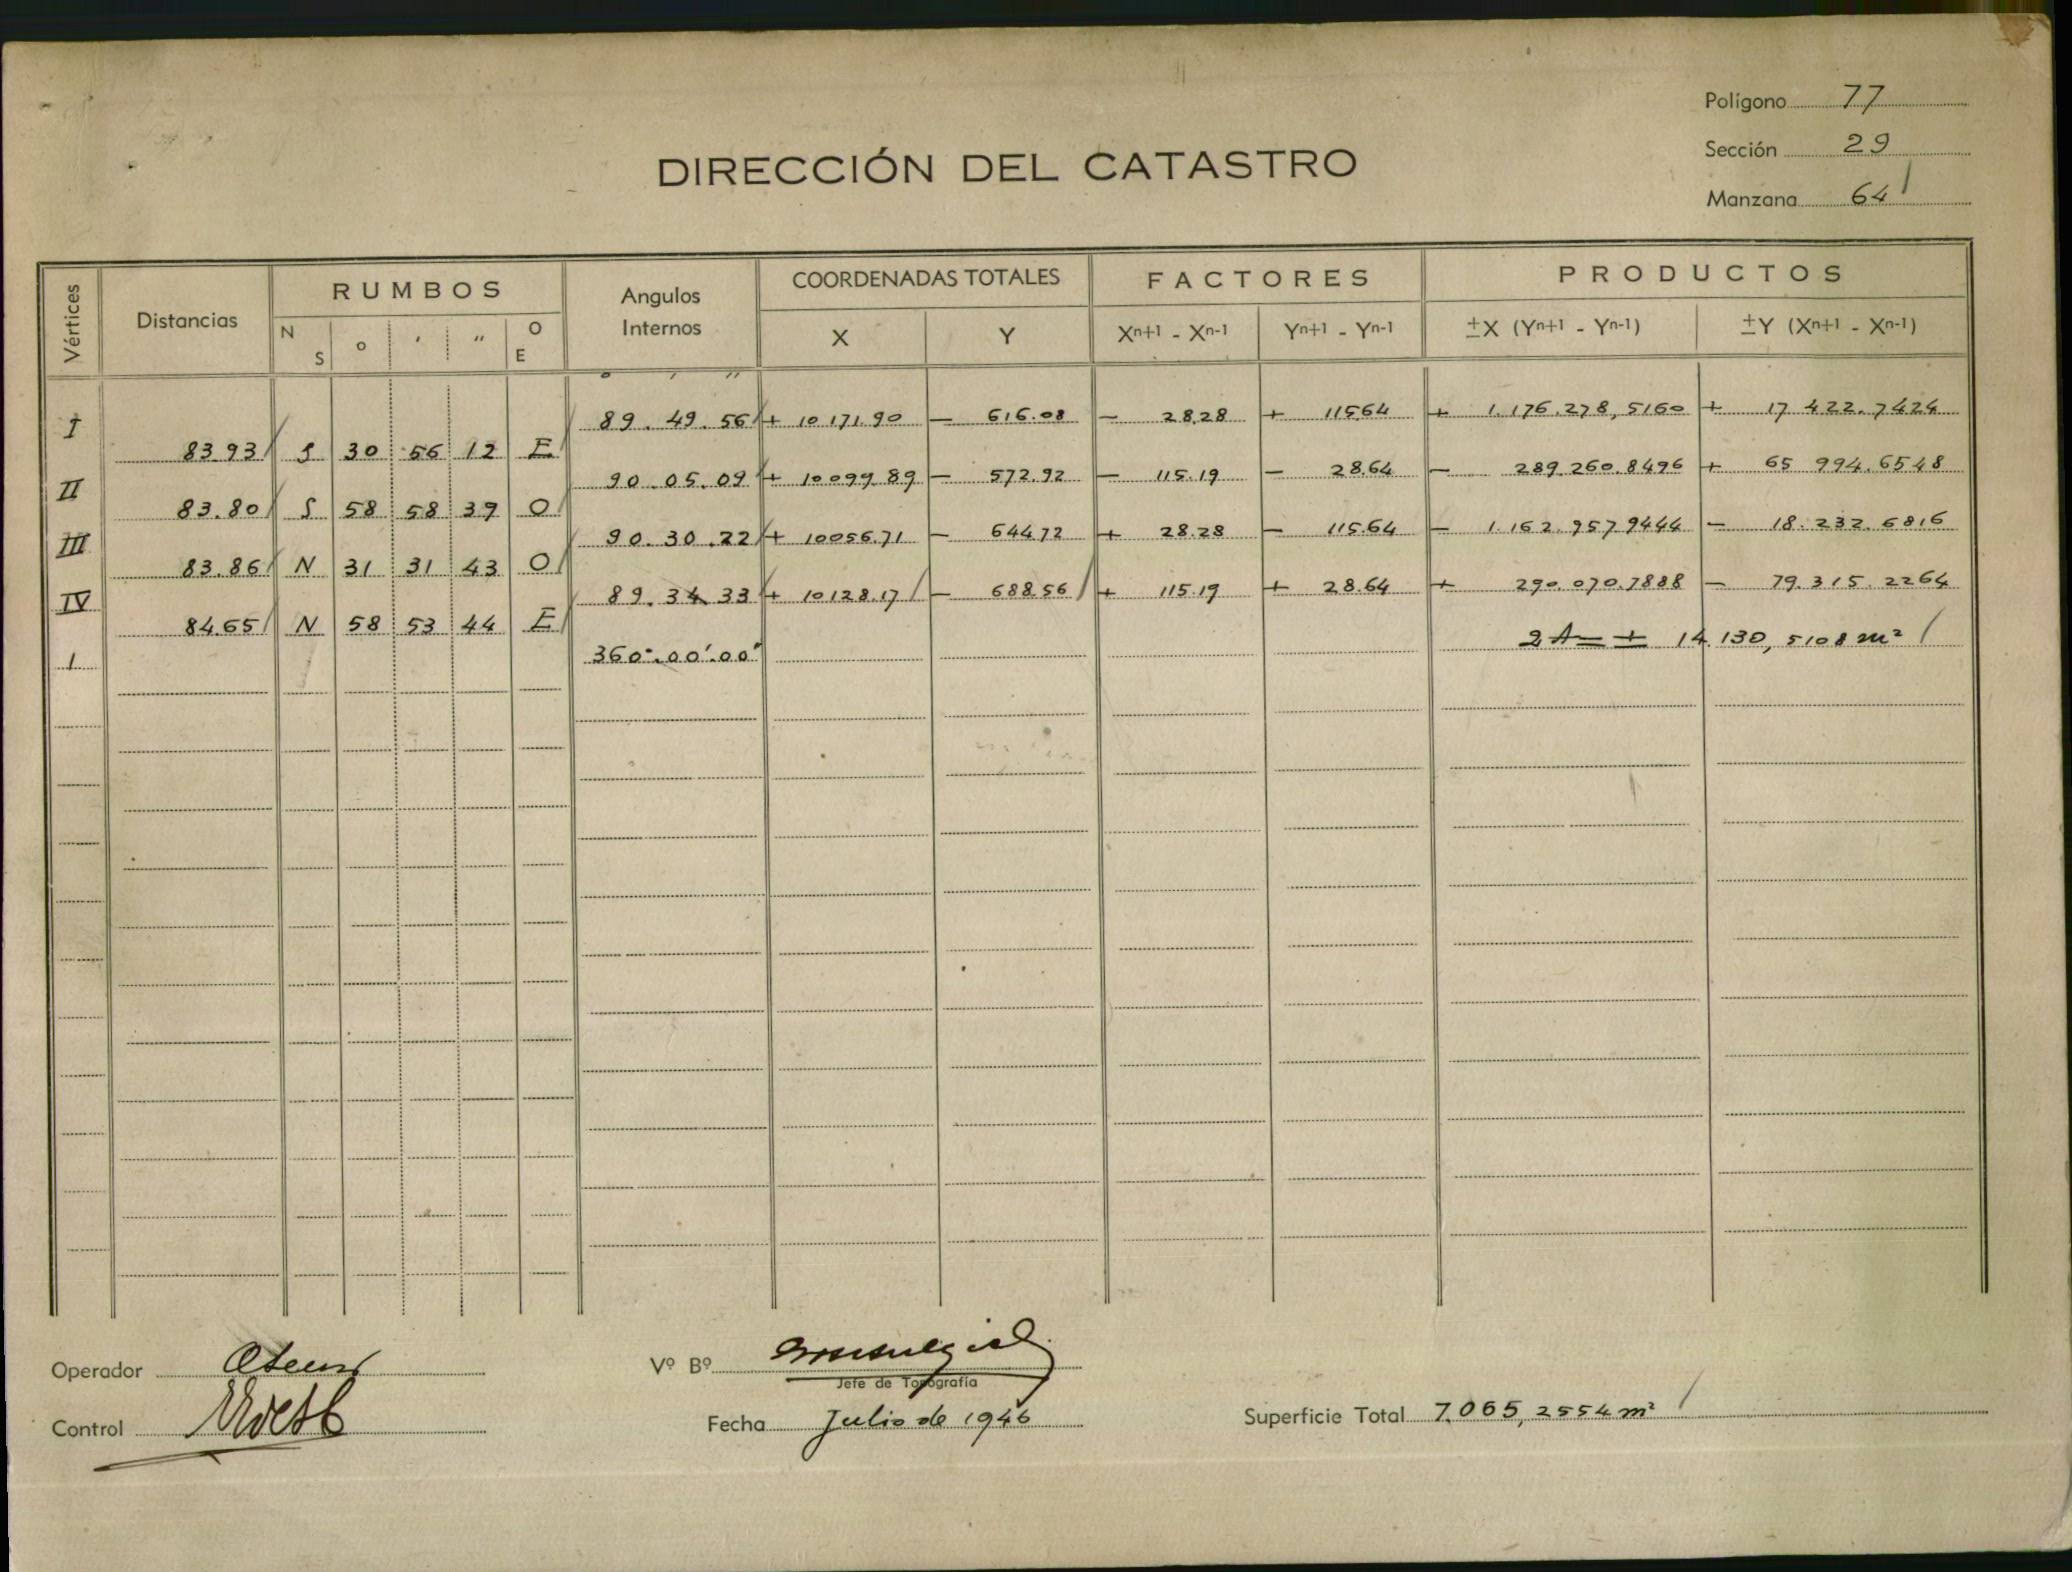 Polígono 77
Sección 29
Manzana 64
DIRECCIÓN DEL CATASTRO
Vértices Distancias RUMBOS Angulos Internos COORDENADAS TOTALES FACTORES PRODUCTOS
N S o ' " O E X Y Xn+1 - Xn-1 Yn+1 - Yn-1 ±X (Yn+1 - Yn-1) ±Y (Xn+1 - Xn-1)
o ' "
I 89. 49. 56 + 10171.90 — 616.08 — 28.28 + 115.64 + 1.176.278,5160 + 17 422.7424
83.93 S 30 56 12 E
II 90.05.09 + 10099.89 — 572.92 — 115.19 — 28.64 — 289.260.8496 + 65 994.6548
83.80 S 58 58 39 O
III 90.30.22 + 10056.71 — 644.72 + 28.28 — 115.64 — 1.162.957.9444 — 18.232.6816
83.86 N 31 31 43 O
IV 89.34.33 + 10128.17 — 688.56 + 115.19 + 28.64 + 290.070.7888 — 79.315.2264
84.65 N 58 53 44 E
I 360°.00'.00" 2A = + 14.130,5108 m²
Operador
Vº Bº
Jefe de Topografía
Control
Fecha Julio de 1946
Superficie Total 7.065,2554 m²